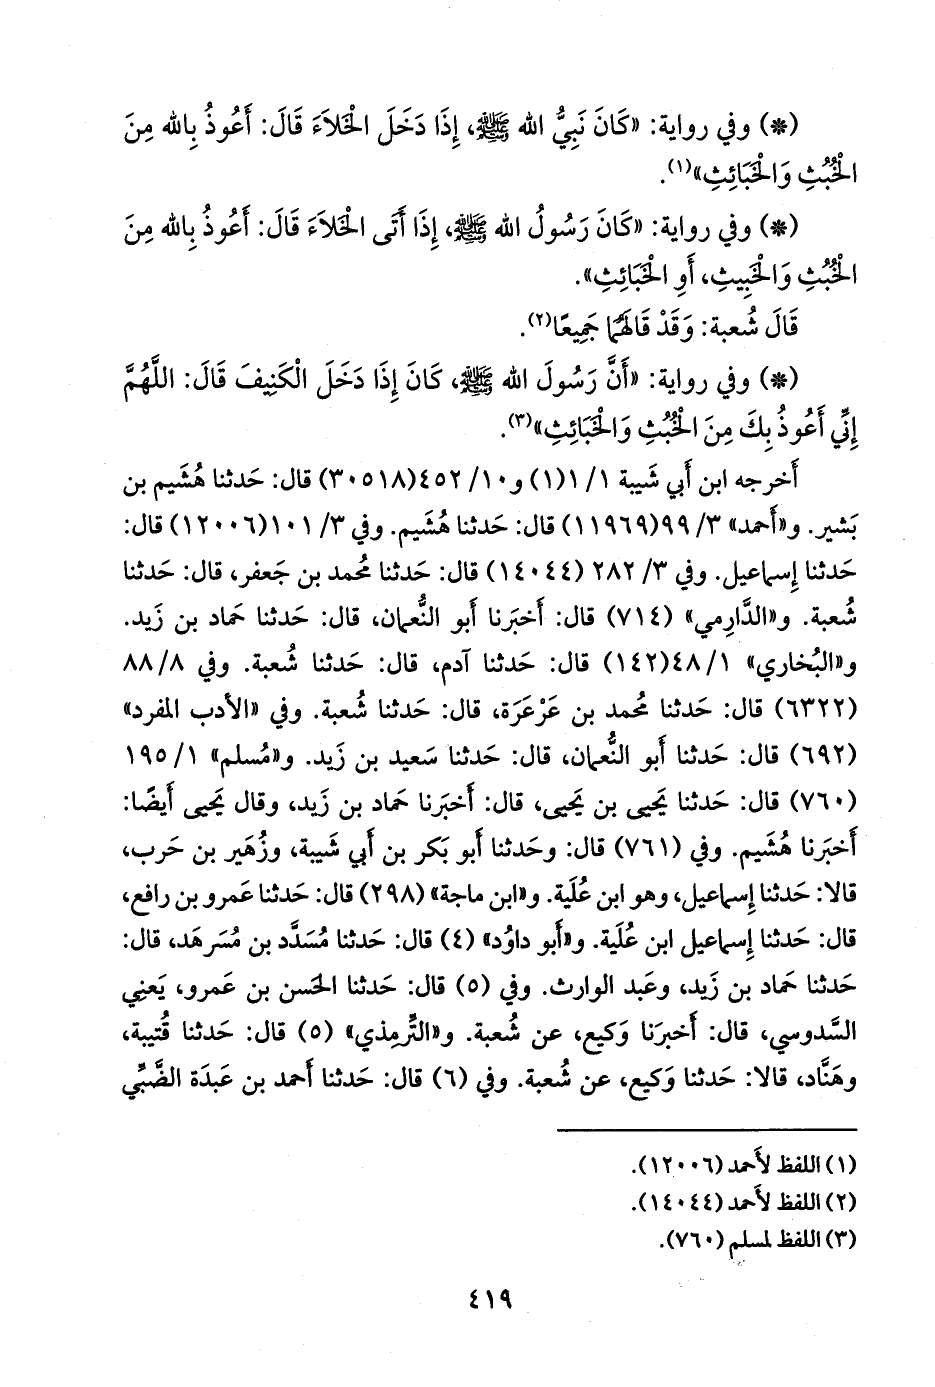 (*) وفي رواية: «كَانَ نَبِيُّ الله ﷺ، إِذَا دَخَلَ الْخَلاَءَ قَالَ: أَعُوذُ بِالله مِنَ
الْخُبُثِ وَالْخَبَائِثِ»(١).
(*) وفي رواية: «كَانَ رَسُولُ الله ﷺ، إِذَا أَتَى الْخَلاَءَ قَالَ: أَعُوذُ بِالله مِنَ
الْخُبُثِ وَالْخَبِيثِ، أَوِ الْخَبَائِثِ».
قَالَ شُعبة: وَقَدْ قَالَهُمَا جَمِيعًا(٢).
(*) وفي رواية: «أَنَّ رَسُولَ الله ﷺ، كَانَ إِذَا دَخَلَ الْكَنِيفَ قَالَ: اللَّهُمَّ
إِنِّي أَعُوذُ بِكَ مِنَ الْخُبُثِ وَالْخَبَائِثِ»(٣).
أَخرجه ابن أَبي شَيبة ١/ ١(١) و١٠/ ٤٥٢(٣٠٥١٨) قال: حَدثنا هُشَيم بن
بَشير. و«أَحمد» ٣/ ٩٩(١١٩٦٩) قال: حَدثنا هُشَيم. وفي ٣/ ١٠١(١٢٠٠٦) قال:
حَدثنا إِسماعيل. وفي ٣/ ٢٨٢ (١٤٠٤٤) قال: حَدثنا مُحمد بن جَعفر، قال: حَدثنا
شُعبة. و«الدَّارِمي» (٧١٤) قال: أَخبَرنا أَبو النُّعمان، قال: حَدثنا حَماد بن زَيد.
و«البُخاري» ١/ ٤٨(١٤٢) قال: حَدثنا آدم، قال: حَدثنا شُعبة. وفي ٨/ ٨٨
(٦٣٢٢) قال: حَدثنا مُحمد بن عَرْعَرَة، قال: حَدثنا شُعبة. وفي «الأَدب المُفرد»
(٦٩٢) قال: حَدثنا أَبو النُّعمان، قال: حَدثنا سَعيد بن زَيد. و«مُسلم» ١/ ١٩٥
(٧٦٠) قال: حَدثنا يَحيى بن يَحيى، قال: أَخبَرنا حَماد بن زَيد، وقال يَحيى أَيضًا:
أَخبَرنا هُشَيم. وفي (٧٦١) قال: وحَدثنا أَبو بَكر بن أَبي شَيبة، وزُهَير بن حَرب،
قالا: حَدثنا إِسماعيل، وهو ابن عُلَية. و«ابن ماجة» (٢٩٨) قال: حَدثنا عَمرو بن رافع،
قال: حَدثنا إِسماعيل ابن عُلَية. و«أَبو داوُد» (٤) قال: حَدثنا مُسَدَّد بن مُسَرهَد، قال:
حَدثنا حَماد بن زَيد، وعَبد الوارث. وفي (٥) قال: حَدثنا الحَسن بن عَمرو، يَعنِي
السَّدوسي، قال: أَخبرَنا وَكيع، عن شُعبة. و«التِّرمِذي» (٥) قال: حَدثنا قُتيبة،
وهَنَّاد، قالا: حَدثنا وَكيع، عن شُعبة. وفي (٦) قال: حَدثنا أَحمد بن عَبدَة الضَّبِّي
(١) اللفظ لأَحمد (١٢٠٠٦).
(٢) اللفظ لأَحمد (١٤٠٤٤).
(٣) اللفظ لمسلم (٧٦٠).
٤١٩